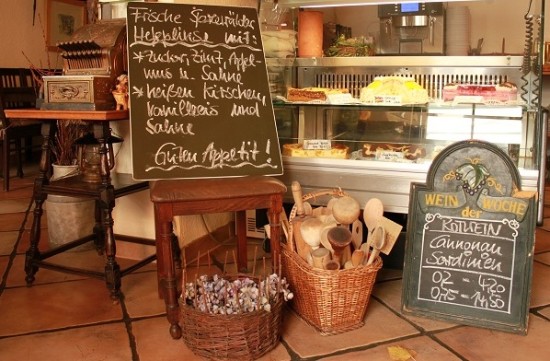 Frische Spreewälder
Hefeplinse mit:
* Zucker, Zimt, Apfel-
mus u. Sahne
* heißen Kirschen,
Vanilleeis und
Sahne
Guten Appetit!
WEIN der WOCHE
ROTWEIN
Cannonau
Sardinien
0,2 - 4,20
0,75 - 14,50